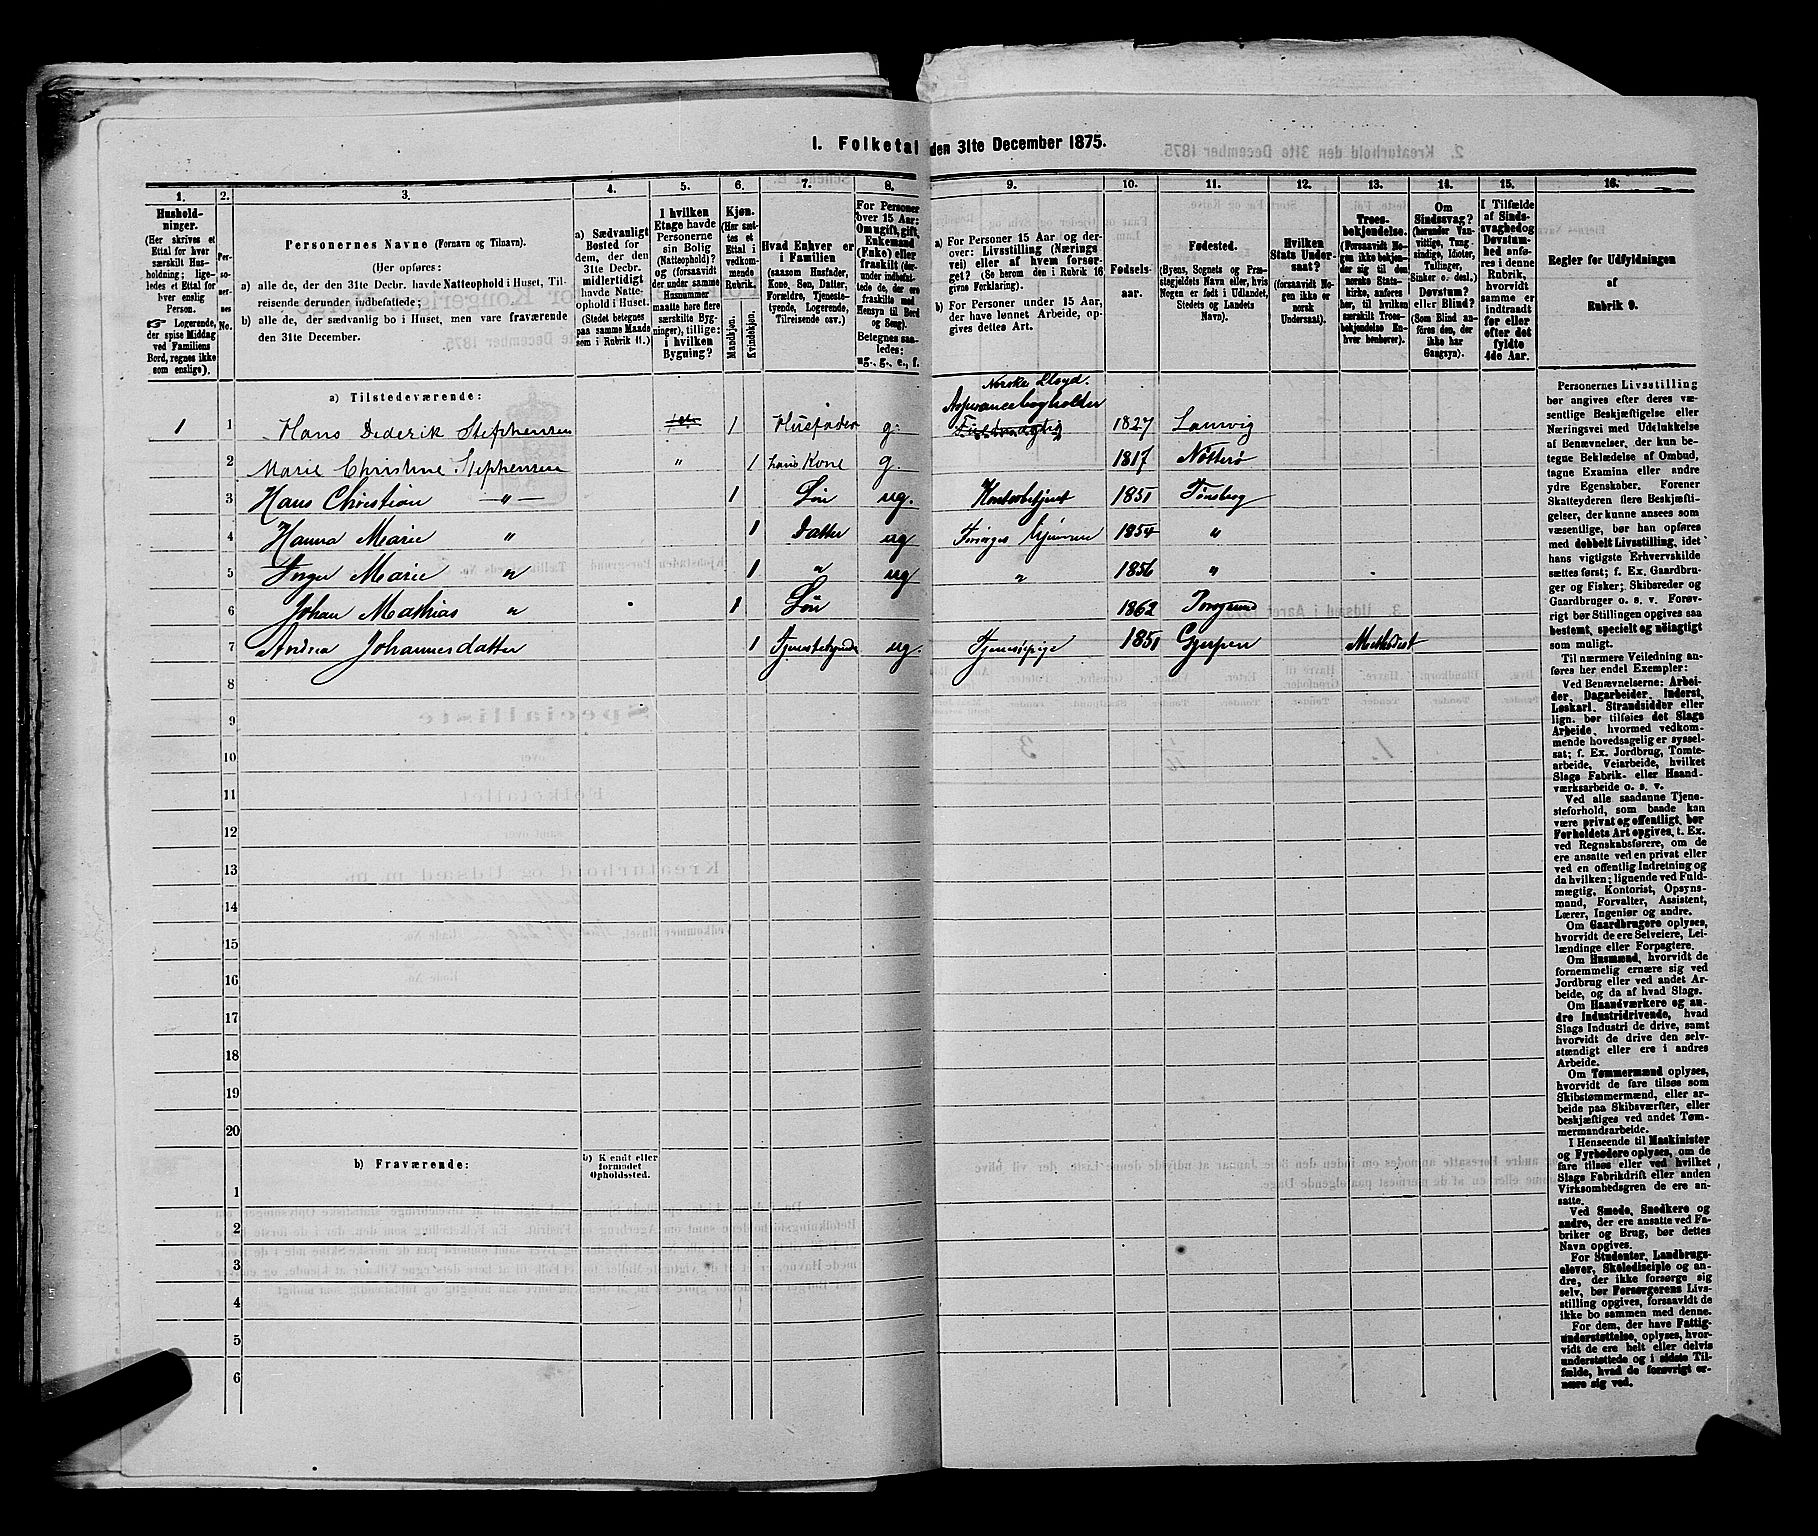 1. Folketal den 31te December 1875.
1. 2. 3. 4. 5. 6. 7. 8. 9. 10. 11. 12. 13. 14. 15. 16.
Hushold-
ninger.
(Her skrives et
Ettal for hver
særskilt Hus-
holdning; lige-
ledes et Ettal for
hver enslig
Person.
☞ Logerende,
der spise Middag
ved Familiens
Bord, regnes ikke
som enslige).
Per-
so-
ner-
nes
No.
Personernes Navne (Fornavn og Tilnavn).
(Her opføres:
a) alle de, der den 31te Decbr. havde Natteophold i Huset, Til-
reisende derunder indbefattede;
b) alle de, der sædvanlig bo i Huset, men vare fraværende
den 31te December.
a) Sædvanligt
Bosted for
dem, der den
31te Decbr.
midlertidigt
havde Natte-
ophold i Huset.
(Stedet betegnes
paa samme Maade
som i Rubrik 11.)
I hvilken
Etage havde
Personerne
sin Bolig
(Natteophold)?
og (forsaavidt
der under samme
Husnummer
maatte høre flere
særskilte Byg-
ninger), tillige:
i hvilken
Bygning?
Kjøn.
(Her sæt-
tes et
Ettal i
vedkom-
mende
Rubrik.
Mandkjøn.
Kvindekjøn.
Hvad Enhver er
i Familien
(saasom Husfader,
Kone, Søn, Datter,
Forældre, Tjeneste-
tyende, Logerende,
Tilreisende osv.)
For Personer
over 15 Aar:
Om ugift, gift,
Enkemand
(Enke) eller
fraskilt (der-
under indbefat-
tede de, der ere
fraskilte med
Hensyn til Bord
og Seng).
Betegnes saa-
ledes:
ug., g., e., f.
a) For Personer 15 Aar og der-
over: Livsstilling (Nærings
vei) eller af hvem forsør-
get? (Se herom den i Rubrik 16
givne Forklaring).
b) For Personer under 15 Aar,
der have lønnet Arbeide, op-
gives dettes Art.
Fødsels-
aar.
Fødested.
(Byens, Sognets og Præ-
stegjeldets Navn eller, hvis
Nogen er født i Udlandet,
Stedets og Landets
Navn).
Hvilken
Stats Under-
saat?
(forsaavidt No-
gen ikke er
norsk
Undersaat).
Troes-
bekjendelse.
(Forsaavidt No-
gen ikke bekjen-
der sig til den
norske Stats-
kirke, anføres
her, til hvilken
særskilt Troes-
bekjendelse En-
hver henhører).
Om
Sindssvag?
(herunder Van-
vittige, Tung-
sindige, Idioter,
Tullinger,
Sinker o. desl.)
Døvstum?
eller Blind?
(Som Blind an-
føres den, der
ikke har
Gangsyn).
I Tilfælde
af Sinds-
svaghed og
Døvstum-
hed anfø-
res i denne
Rubrik,
hvorvidt
samme er
indtraadt
før eller
efter det
fyldte
4de Aar.
Regler for Udfyldningen
af
Rubrik 9.
a) Tilstedeværende:
Norske Lloyd.
1 1 Hans Diderik Stephensen 1 Husfader g. Assurancebogholder 1827 Laurvig
2 Marie Christine Stephensen " 1 hans Kone g. 1817 Nötterö
3 Hans Christian —"— 1 Sön ug. Kontorbetjent 1851 Tönsberg
4 Hanna Marie " 1 Datter ug 1854 "
5 Inger Marie " 1 " ug " 1856 "
6 Johan Mathias " 1 Sön 1862 Porsgrund
7 Andrea Johannesdatter 1 Tjenestetyende ug. Tjenestepige 1851 Gjerpen Methodist
8
9
10
11
12
13
14
15
16
17
18
19
20
b) Fraværende:
b) Kjendt eller
formodet
Opholdssted.
1
2
3
4
5
6
Personernes Livsstilling
bør angives efter deres væ-
sentlige Beskjæftigelse eller
Næringsvei med Udelukkelse
af Benævnelser, der kun be-
tegne Beklædelse af Ombud,
tagne Examina eller andre
ydre Egenskaber. Forener
Skatteyderen flere Beskjæfti-
gelser, der kunne ansees som
væsentlige, bør han opføres
med dobbelt Livsstilling, idet
hans vigtigste Erhvervskilde
sættes først; f. Ex. Gaardbru-
ger og Fisker; Skibsreder og
Gaardbruger o. s. v. Forøv-
rigt bør Stillingen opgives saa
bestemt, specielt og nöiagtigt
som muligt.
Til nærmere Veiledning an-
føres her endel Exempler:
Ved Benævnelserne: Arbei-
der, Dagarbeider, Inderst,
Løskarl, Strandsidder eller
lign. bør tilføies det Slags
Arbeide, hvormed vedkom-
mende hovedsagelig er syssel-
sat; f. Ex. Jordbrug, Tomte-
arbeide, Veiarbeide, hvilket
Slags Fabrik- eller Haand-
værksarbeide o. s. v.
Ved alle saadanne Tjene-
steforhold, som baade kan
være privat og offentligt, bør
Forholdets Art opgives, t. Ex.
ved Regnskabsførere, om de
ere ansatte ved en privat eller
ved en offentlig Indretning og
da hvilken; lignende ved Fuld-
mægtig, Kontorist, Opsyns-
mand, Forvalter, Assistent,
Lærer, Ingeniør og andre.
Om Gaardbrugere oplyses,
hvorvidt de ere Selveiere, Lei-
lændinge eller Forpagtere.
Om Husmænd, hvorvidt de
fornemmelig ernære sig ved
Jordbrug eller ved andet Ar-
beide, og da af hvad Slags.
Om Haandværkere og an-
dre Industridrivende, hvad
Slags Industri de drive, samt
hvorvidt de drive den selv-
stændigt eller ere i andres
Arbeide.
Om Tømmermænd oplyses,
hvorvidt de fare tilsøs som
Skibstømmermænd, eller ar-
beide paa Skibsværfter, eller
beskjæftiges ved andet Tøm-
mermandsarbeide.
I Henseende til Maskinister
og Fyrbødere oplyses, om de
fare tilsøs eller ved hvilket
Slags Fabrikdrift eller anden
Virksomhedsgren de ere an-
satte.
Ved Smede, Snedkere og
andre, der ere ansatte ved Fa-
briker og Brug, bør dettes
Navn opgives.
For Studenter, Landbrugs-
elever, Skoledisciple og an-
dre, der ikke forsørge sig
selv, bør Forsørgerens Livs-
stilling opgives, forsaavidt de
ikke bo sammen med denne.
For dem, der have Fattig-
understøttelse, oplyses, hvor-
vidt de ere helt eller delvis
understøttede og i sidste Til-
fælde, hvad de forøvrigt er-
nære sig ved.